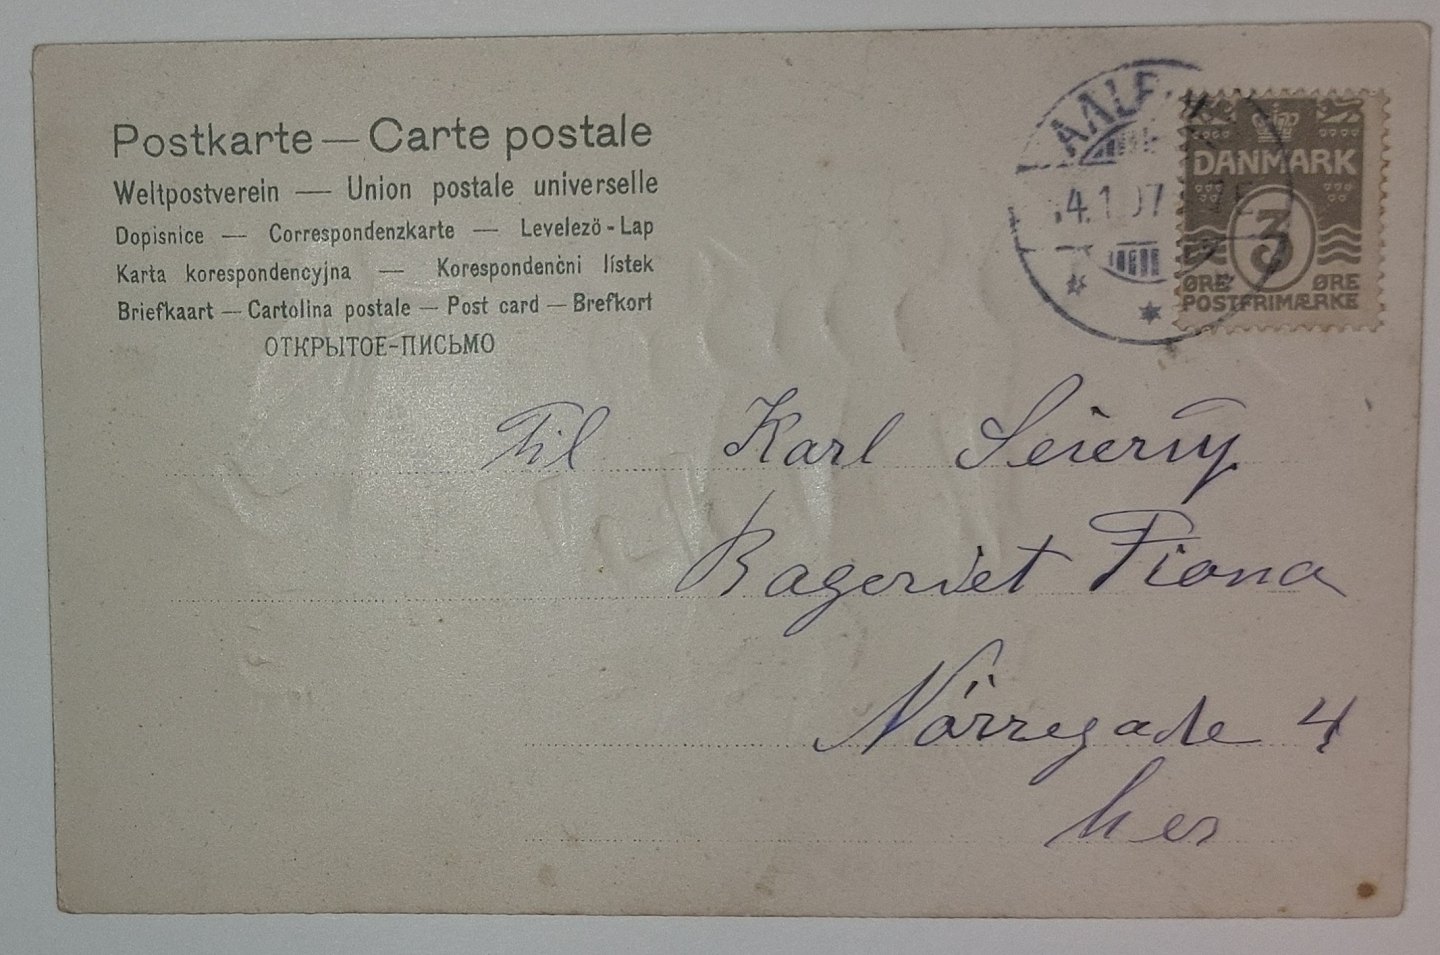 Postkarte — Carte postale
Weltpostverein — Union postale universelle
Dopisnice — Correspondenzkarte — Levelező-Lap
Karta korespondencyjna — Korespondenčni lístek
Briefkaart — Cartolina postale — Post card — Brefkort
ОТКРЫТОЕ-ПИСЬМО
4.1.07
DANMARK
3
ØRE ØRE
POSTFRIMÆRKE
Til Karl
Bageriet Fiona
Nörregade 4
her